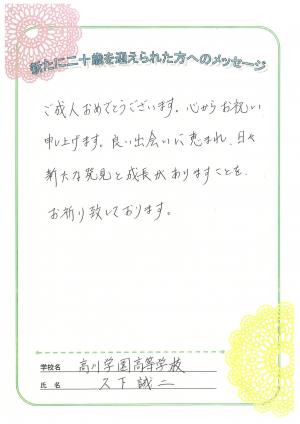 新たに二十歳を迎えられた方へのメッセージ
ご成人おめでとうございます。心からお祝い
申し上げます。良い出会いに恵まれ、日々
新たな発見と成長がありますことを、
お祈り致しております。
学校名 高川学園高等学校
氏名 久下誠二